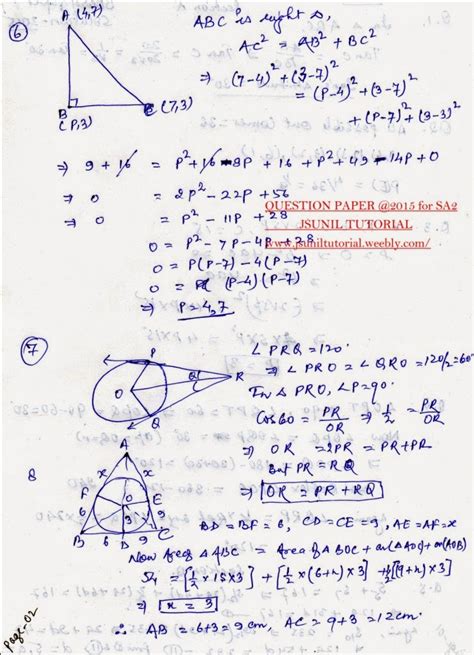 6
A (4,7)
B
(P,3)
C (7,3)
ABC is right Δ,
AC² = AB² + BC²
⇒ (7-4)² + (3-7)²
= (P-4)² + (3-7)²
+ (P-7)² + (3-3)²
⇒ 9 + 16 = P² + 16 - 8P + 16 + P² + 49 - 14P + 0
⇒ 0 = 2P² - 22P + 56
⇒ 0 = P² - 11P + 28
0 = P² - 7P - 4P + 28
0 = P(P-7) - 4(P-7)
⇒ 0 = (P-4)(P-7)
⇒ P = 4,7
QUESTION PAPER @2015 for SA2
JSUNIL TUTORIAL
www.jsuniltutorial.weebly.com/
7
P
O
R
Q
∠PRQ = 120°
⇒ ∠PRO = ∠QRO = 120/2 = 60°
In Δ PRO, ∠P = 90°
Cos 60 = PR/OR ⇒ 1/2 = PR/OR
⇒ OR = 2PR = PR + PR
But PR = RQ
⇒ OR = PR + RQ
8
A
x x
F E
O
6 9
3
B 6 D 9 C
BD = BF = 6, CD = CE = 9, AE = AF = x
Now Area of Δ ABC = Area of Δ BOC + ar(ΔAOC) + ar(AOB)
= [1/2 × 15 × 3] + [1/2 × (6+x) × 3] + 1/2[(9+x) × 3]
⇒ x = 3
∴ AB = 6+3 = 9 cm, AC = 9+3 = 12 cm.
Page-02